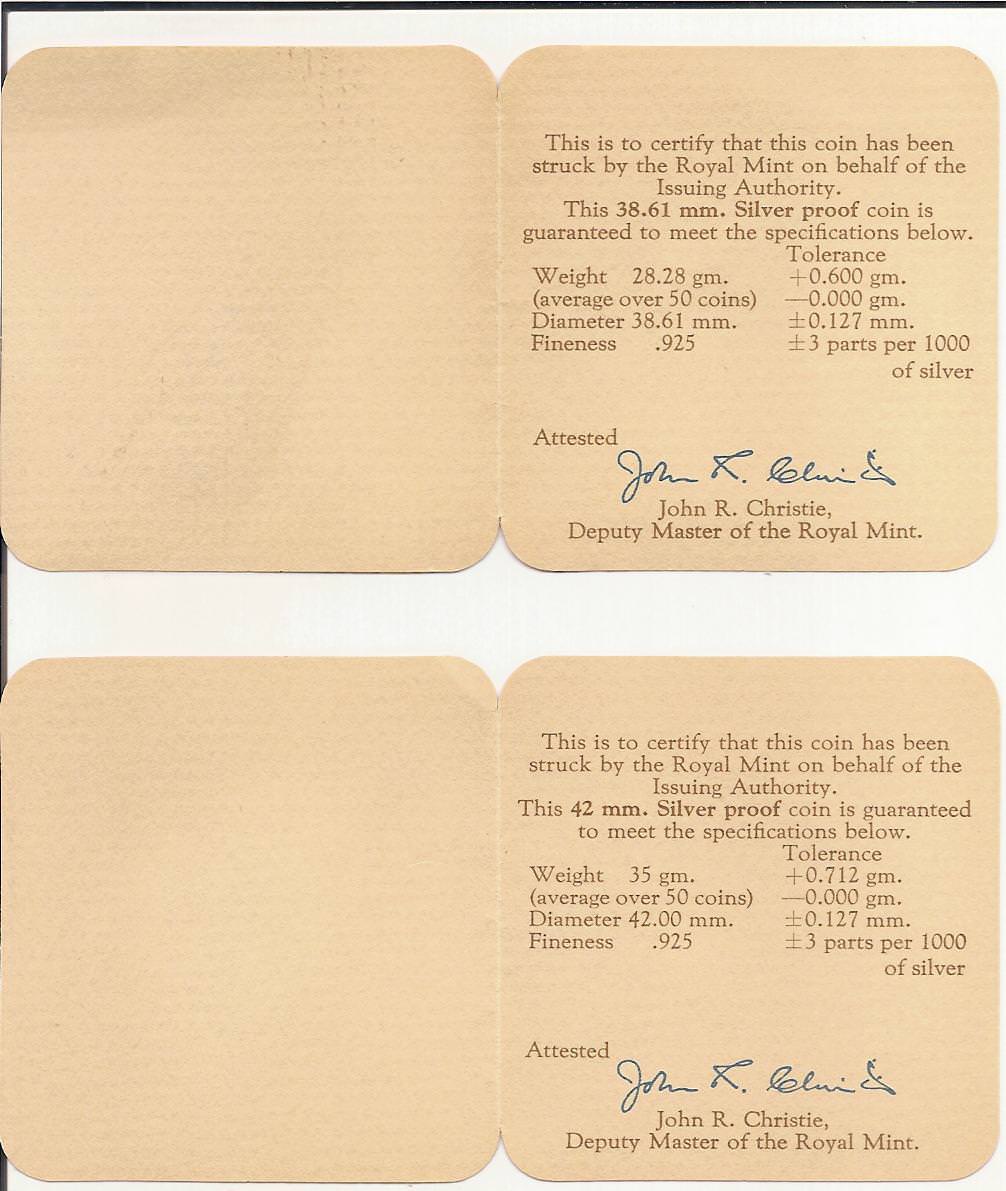 This is to certify that this coin has been
struck by the Royal Mint on behalf of the
Issuing Authority.
This 38.61 mm. Silver proof coin is
guaranteed to meet the specifications below.
Tolerance
Weight 28.28 gm. +0.600 gm.
(average over 50 coins) —0.000 gm.
Diameter 38.61 mm. ±0.127 mm.
Fineness .925 ±3 parts per 1000
of silver
Attested
John R. Christie
John R. Christie,
Deputy Master of the Royal Mint.
This is to certify that this coin has been
struck by the Royal Mint on behalf of the
Issuing Authority.
This 42 mm. Silver proof coin is guaranteed
to meet the specifications below.
Tolerance
Weight 35 gm. +0.712 gm.
(average over 50 coins) —0.000 gm.
Diameter 42.00 mm. ±0.127 mm.
Fineness .925 ±3 parts per 1000
of silver
Attested
John R. Christie
John R. Christie,
Deputy Master of the Royal Mint.